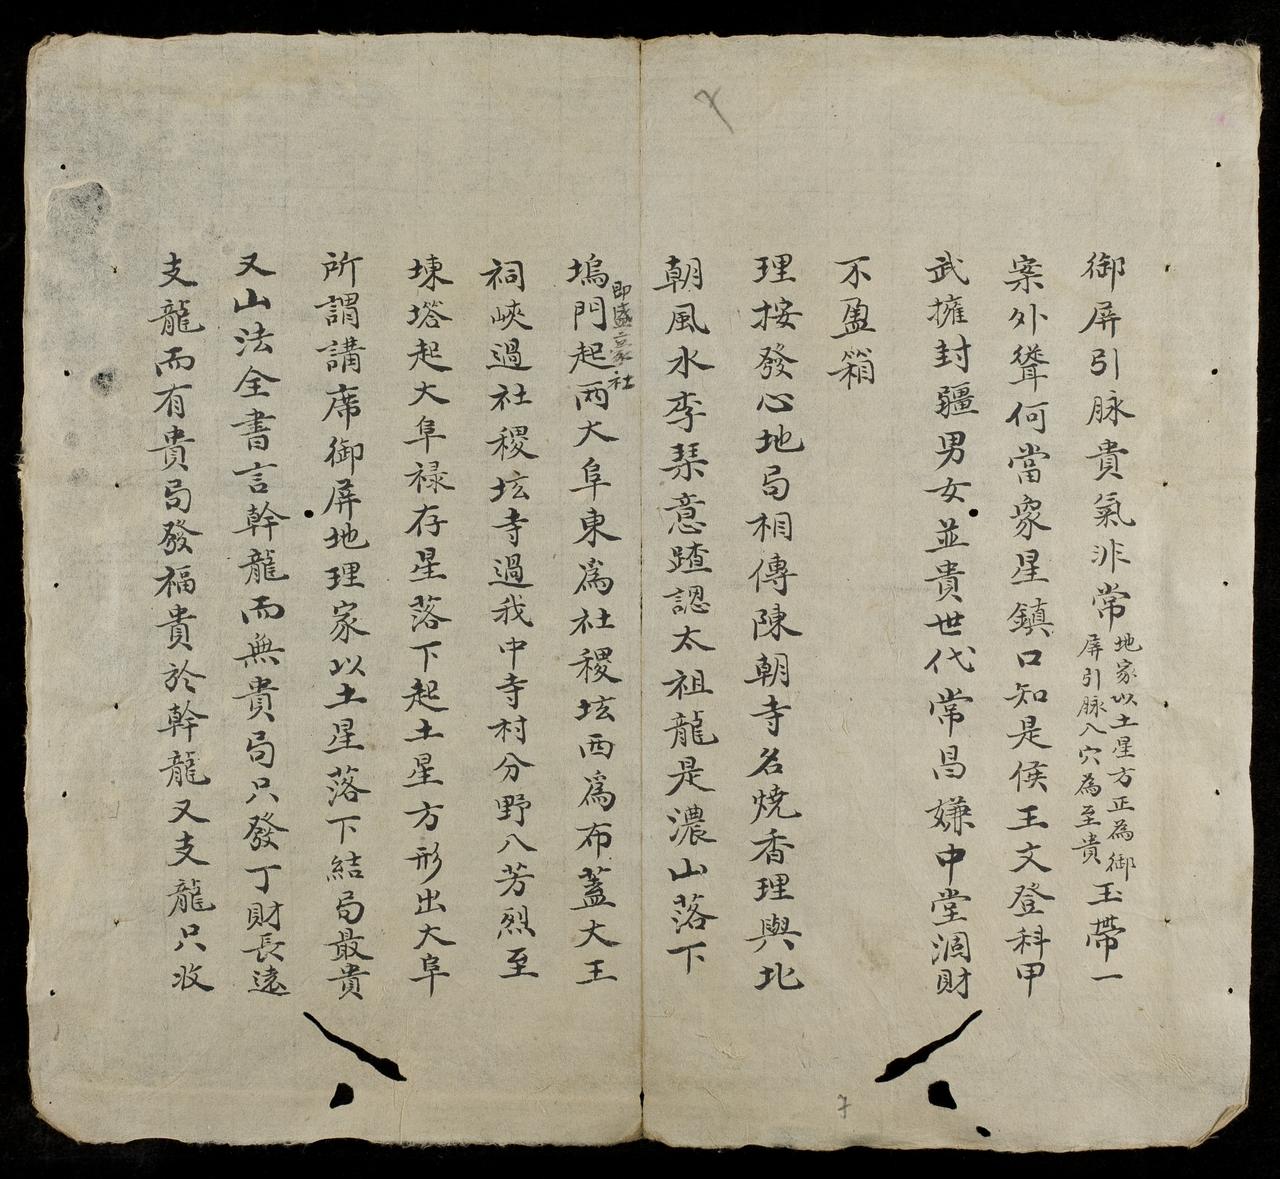 御屏引脉貴氣非常地家以土星方正為御屏引脉入穴為至貴玉帶一
案外聳何當家星鎮口知是侯王文登科甲
武擁封疆男女並貴世代常昌嫌中堂涸財
不盈箱
理按發心地局相傳陳朝寺名燒香理與北
朝風水李琹意蹅認太祖龍是濃山落下
塢門起兩大阜東為社稷坛西為布蓋大王即盛立家社
祠峽過社稷坛寺過我中寺村分野八芳烈至
堜塔起大阜禄存星落下起土星方形出大阜
所謂講席御屏地理家以土星落下結局最貴
又山法全書言幹龍而無貴局只發丁財長遠
支龍而有貴局發福貴於幹龍又支龍只收
7